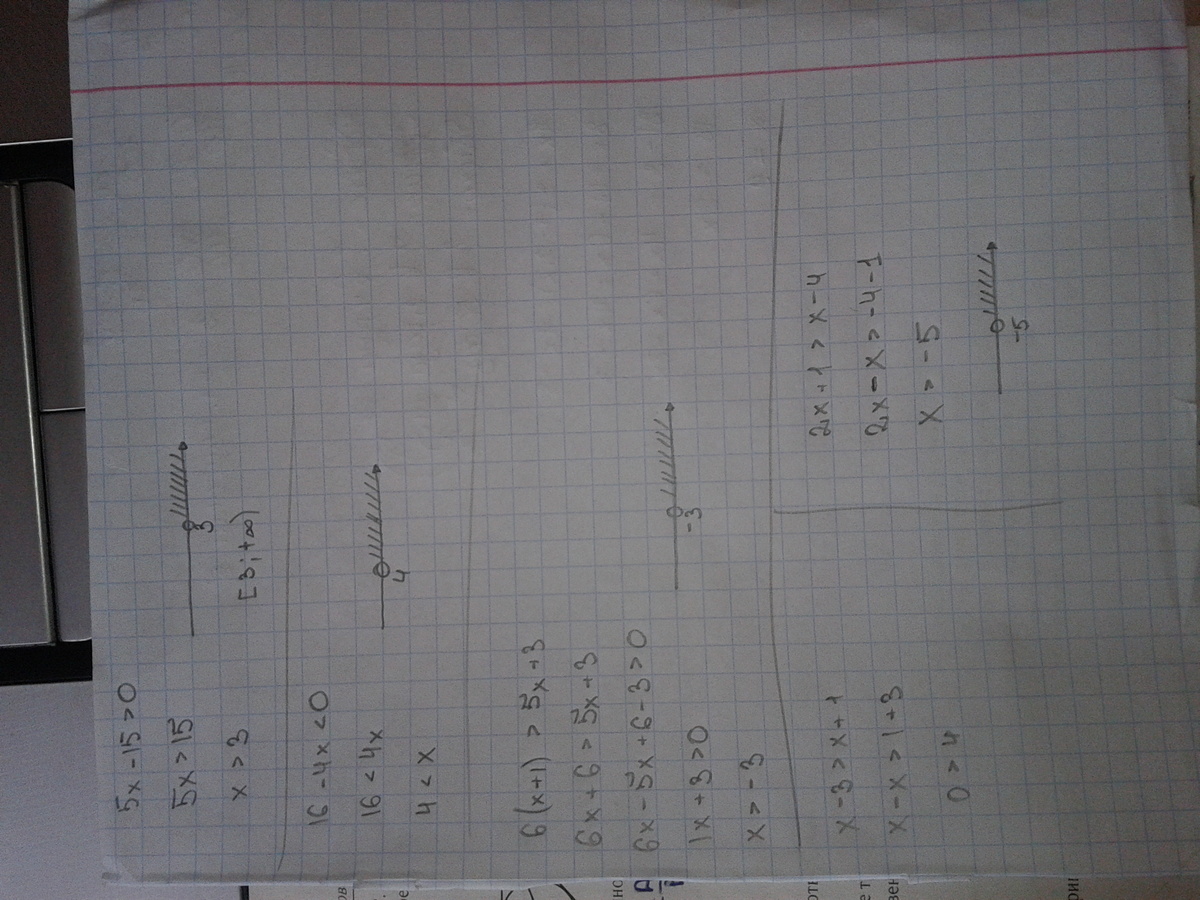 5x - 15 > 0
5x > 15
x > 3
3
[3; +∞)
16 - 4x < 0
16 < 4x
4 < x
4
6(x+1) > 5x + 3
6x + 6 > 5x + 3
6x - 5x + 6 - 3 > 0
1x + 3 > 0
x > -3
-3
x - 3 > x + 1
x - x > 1 + 3
0 > 4
2x + 1 > x - 4
2x - x > -4 - 1
x > -5
-5